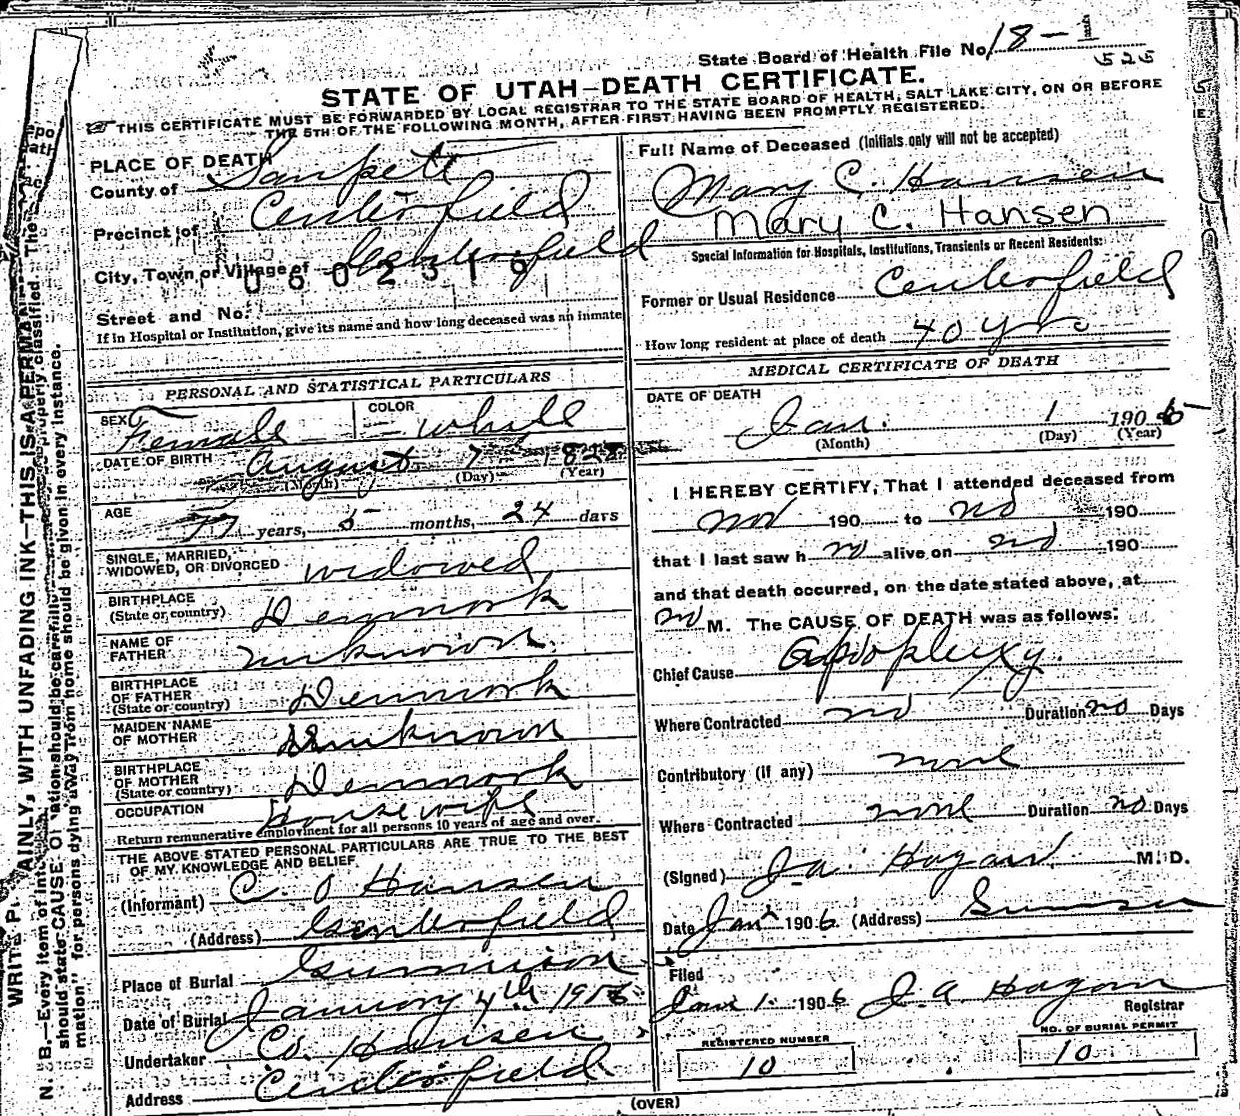 State Board of Health File No. 18-1
525
STATE OF UTAH—DEATH CERTIFICATE.
THIS CERTIFICATE MUST BE FORWARDED BY LOCAL REGISTRAR TO THE STATE BOARD OF HEALTH, SALT LAKE CITY, ON OR BEFORE
THE 5TH OF THE FOLLOWING MONTH, AFTER FIRST HAVING BEEN PROMPTLY REGISTERED.
PLACE OF DEATH
County of Sanpete
Precinct of Centerfield
City, Town or Village of Centerfield
0602319
Street and No.
If in Hospital or Institution, give its name and how long deceased was an inmate
PERSONAL AND STATISTICAL PARTICULARS
SEX Female COLOR White
DATE OF BIRTH August 7 1828
(Month) (Day) (Year)
AGE 77 years, 5 months, 24 days
SINGLE, MARRIED,
WIDOWED, OR DIVORCED widowed
BIRTHPLACE
(State or country) Denmark
NAME OF
FATHER unknown
BIRTHPLACE
OF FATHER
(State or country) Denmark
MAIDEN NAME
OF MOTHER unknown
BIRTHPLACE
OF MOTHER
(State or country) Denmark
OCCUPATION Housewife
Return remunerative employment for all persons 10 years of age and over.
THE ABOVE STATED PERSONAL PARTICULARS ARE TRUE TO THE BEST
OF MY KNOWLEDGE AND BELIEF.
(Informant) C. O Hansen
(Address) Centerfield
Place of Burial Gunnison
Date of Burial January 4th 1906
Undertaker C.O. Hansen
Address Centerfield
Full Name of Deceased (Initials only will not be accepted)
Mary C. Hansen
Mary C. Hansen
Special Information for Hospitals, Institutions, Transients or Recent Residents:
Former or Usual Residence Centerfield
How long resident at place of death 40 yrs
MEDICAL CERTIFICATE OF DEATH
DATE OF DEATH
Jan. 1 190
(Month) (Day) (Year)
I HEREBY CERTIFY, That I attended deceased from
no 190 to no 190
that I last saw h no alive on no 190
and that death occurred, on the date stated above, at
no M. The CAUSE OF DEATH was as follows:
Chief Cause Apoplexy.
Where Contracted no Duration no Days
Contributory (if any) none
Where Contracted none Duration no Days
(Signed) J. A. Hagan M. D.
Date Jan 1906 (Address)
Filed
Jan 1. 1906 J. A Hagan
Registrar
REGISTERED NUMBER
10
NO. OF BURIAL PERMIT
10
(OVER)
AINLY, WITH UNFADING INK—THIS IS A PERMAN
N. B.—Every item of
should state CAUSE OF
mation" for persons dying away from home should be given in every instance.